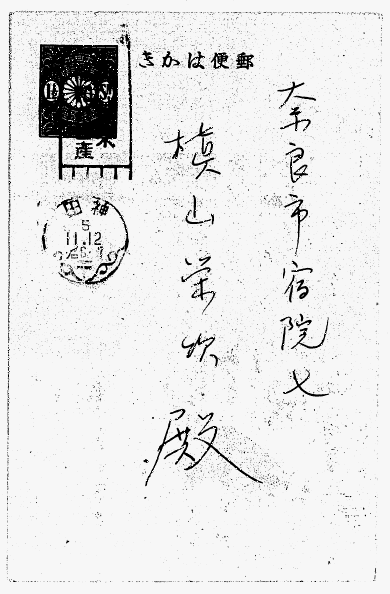 郵便はかき
奈良市宿院七
槙山栄次
殿
神田
5
11.12